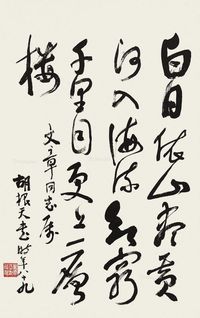 白日依山盡黄
河入海流欲窮
千里目更上一層
樓
文章同志属
胡根天书时年八十九